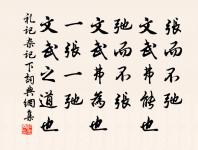 張而不弛
文武弗能也
弛而不張
文武弗為也
一張一弛
文武之道也
礼記雜記下詞典網集